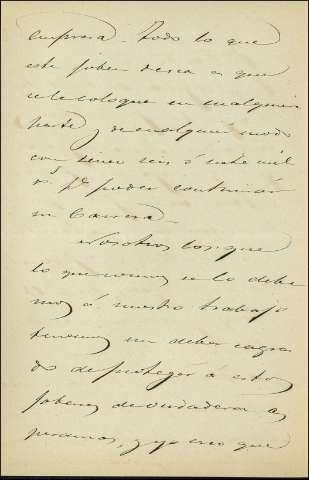 empresa. Todo lo que
este joven desea es que
se le coloque en cualquier
parte y de cualquier modo
con cinco seis ó siete mil
r.s p.a poder continuar
su Carrera.
Nosotros los que
lo que somos se lo debe
mos á nuestro trabajo
tenemos un deber sagra
do de proteger á estos
jobenes de verdaderas es
peranzas, y yo creo que